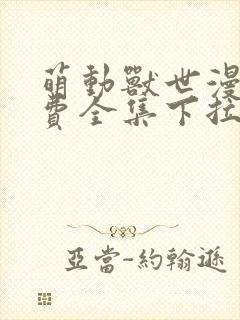 萌動獸世漫
費全集下拉
亞當-約翰遜